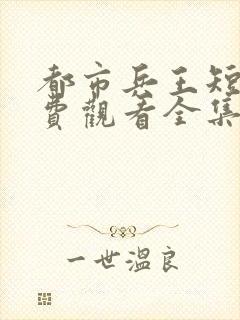 都市兵王短
費觀看全集
一世溫良